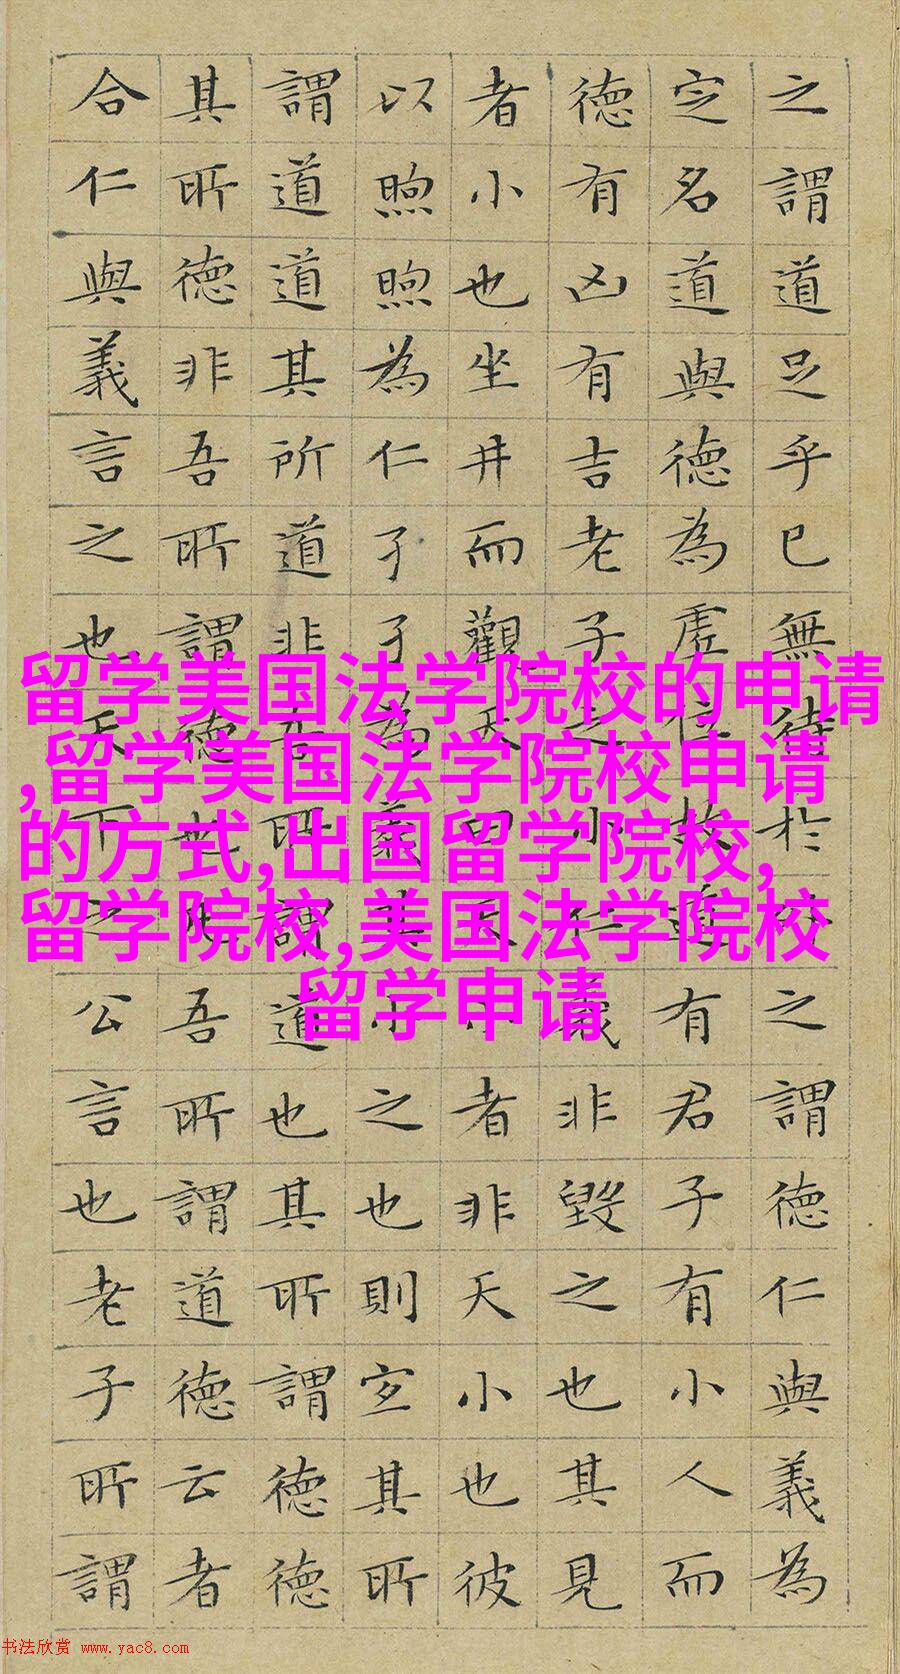 之謂道足乎已無待於外之謂德仁與義為
定名道與德為虛位故道有君子有小人而
德有凶有吉老子之小仁義非毀之也其見
者小也坐井而觀天曰天小者非天小也彼
以煦煦為仁孑孑為義其小之也則宜其所
謂道道其所道非吾所謂道也其所謂德德
其所德非吾所謂德也凡吾所謂道德云者
合仁與義言之也天下之公言也老子所謂
留学美国法学院校的申请
,留学美国法学院校申请
的方式,出国留学院校,
留学院校,美国法学院校
留学申请
书法欣赏 www.yac8.com